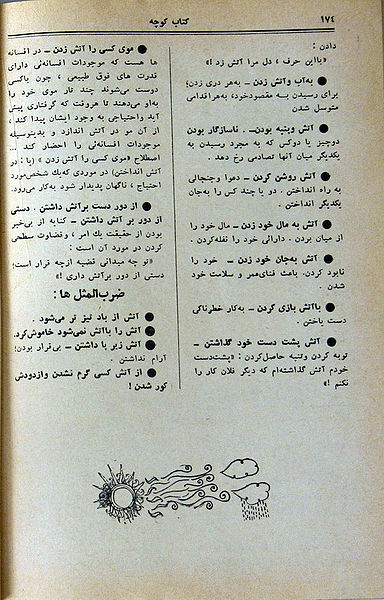 ۱۷٤
کتاب کوچه
دادن :
«بااین حرف ، دل مرا آتش زد !»
● به‌آب وآتش زدن – به‌هر دری زدن؛
برای رسیدن به مقصودخود، به‌هراقدامی
متوسل شدن
● آتش وپنبه بودن–. ناسازگار بودن
دوچیز یا دوکس که به مجرد رسیدن به
یکدیگر میان آنها تصادمی رخ دهد .
● آتش روشن کردن – دعوا وجنجالی
به راه انداختن . دو یا چند کس را به‌جان
یکدیگر انداختن .
● آتش به مال خود زدن – مال خود را
از میان بردن . دارائی خود را نفله‌کردن .
● آتش به‌جان خود زدن – خود را
نابود کردن. باعث فنای‌عمر و سلامت خود
شدن .
● باآتش بازی کردن – به‌کار خطرناکی
دست یاختن .
● آتش پشت دست خود گذاشتن –
توبه کردن وتنبه حاصل‌کردن : «پشت‌دست
خودم آتش گذاشته‌ام که دیگر فلان کار را
نکنم !»
● موی کسی را آتش زدن – در افسانه
ها هست که موجودات افسانه‌ئی دارای
قدرت های فوق طبیعی ، چون باکسی
دوست می‌شوند چند تار موی خود را
به‌او می‌دهند تا هروقت که گرفتاری پیش
آید واحتیاجی به وجود ایشان پیدا کند ،
از آن مو در آتش اندازد و بدینوسیله
موجودات افسانه‌ئی را احضار کند ...
اصطلاح «موی کسی را آتش زدن » (یا : در
آتش انداختن) در موردی که‌یك شخص‌مورد
احتیاج ، ناگهان پدیدار شود به‌کار می‌رود.
● از دور دست برآتش داشتن . دستی
از دور بر آتش داشتن – کنایه از بی‌خبر
بودن از حقیقت یك امر ، وقضاوت سطحی
کردن در مورد آن است :
«تو چه میدانی قضیه ازچه قرار است؛
دستی از دور برآتش داری !»
ضرب‌المثل ها :
● آتش از باد تیز تر می‌شود .
● آتش را باآتش نمی‌شود خاموش‌کرد.
● آتش زیر پا داشتن – بی‌قرار بودن؛
آرام نداشتن .
● از آتش کسی گرم نشدن وازدودش
کور شدن !